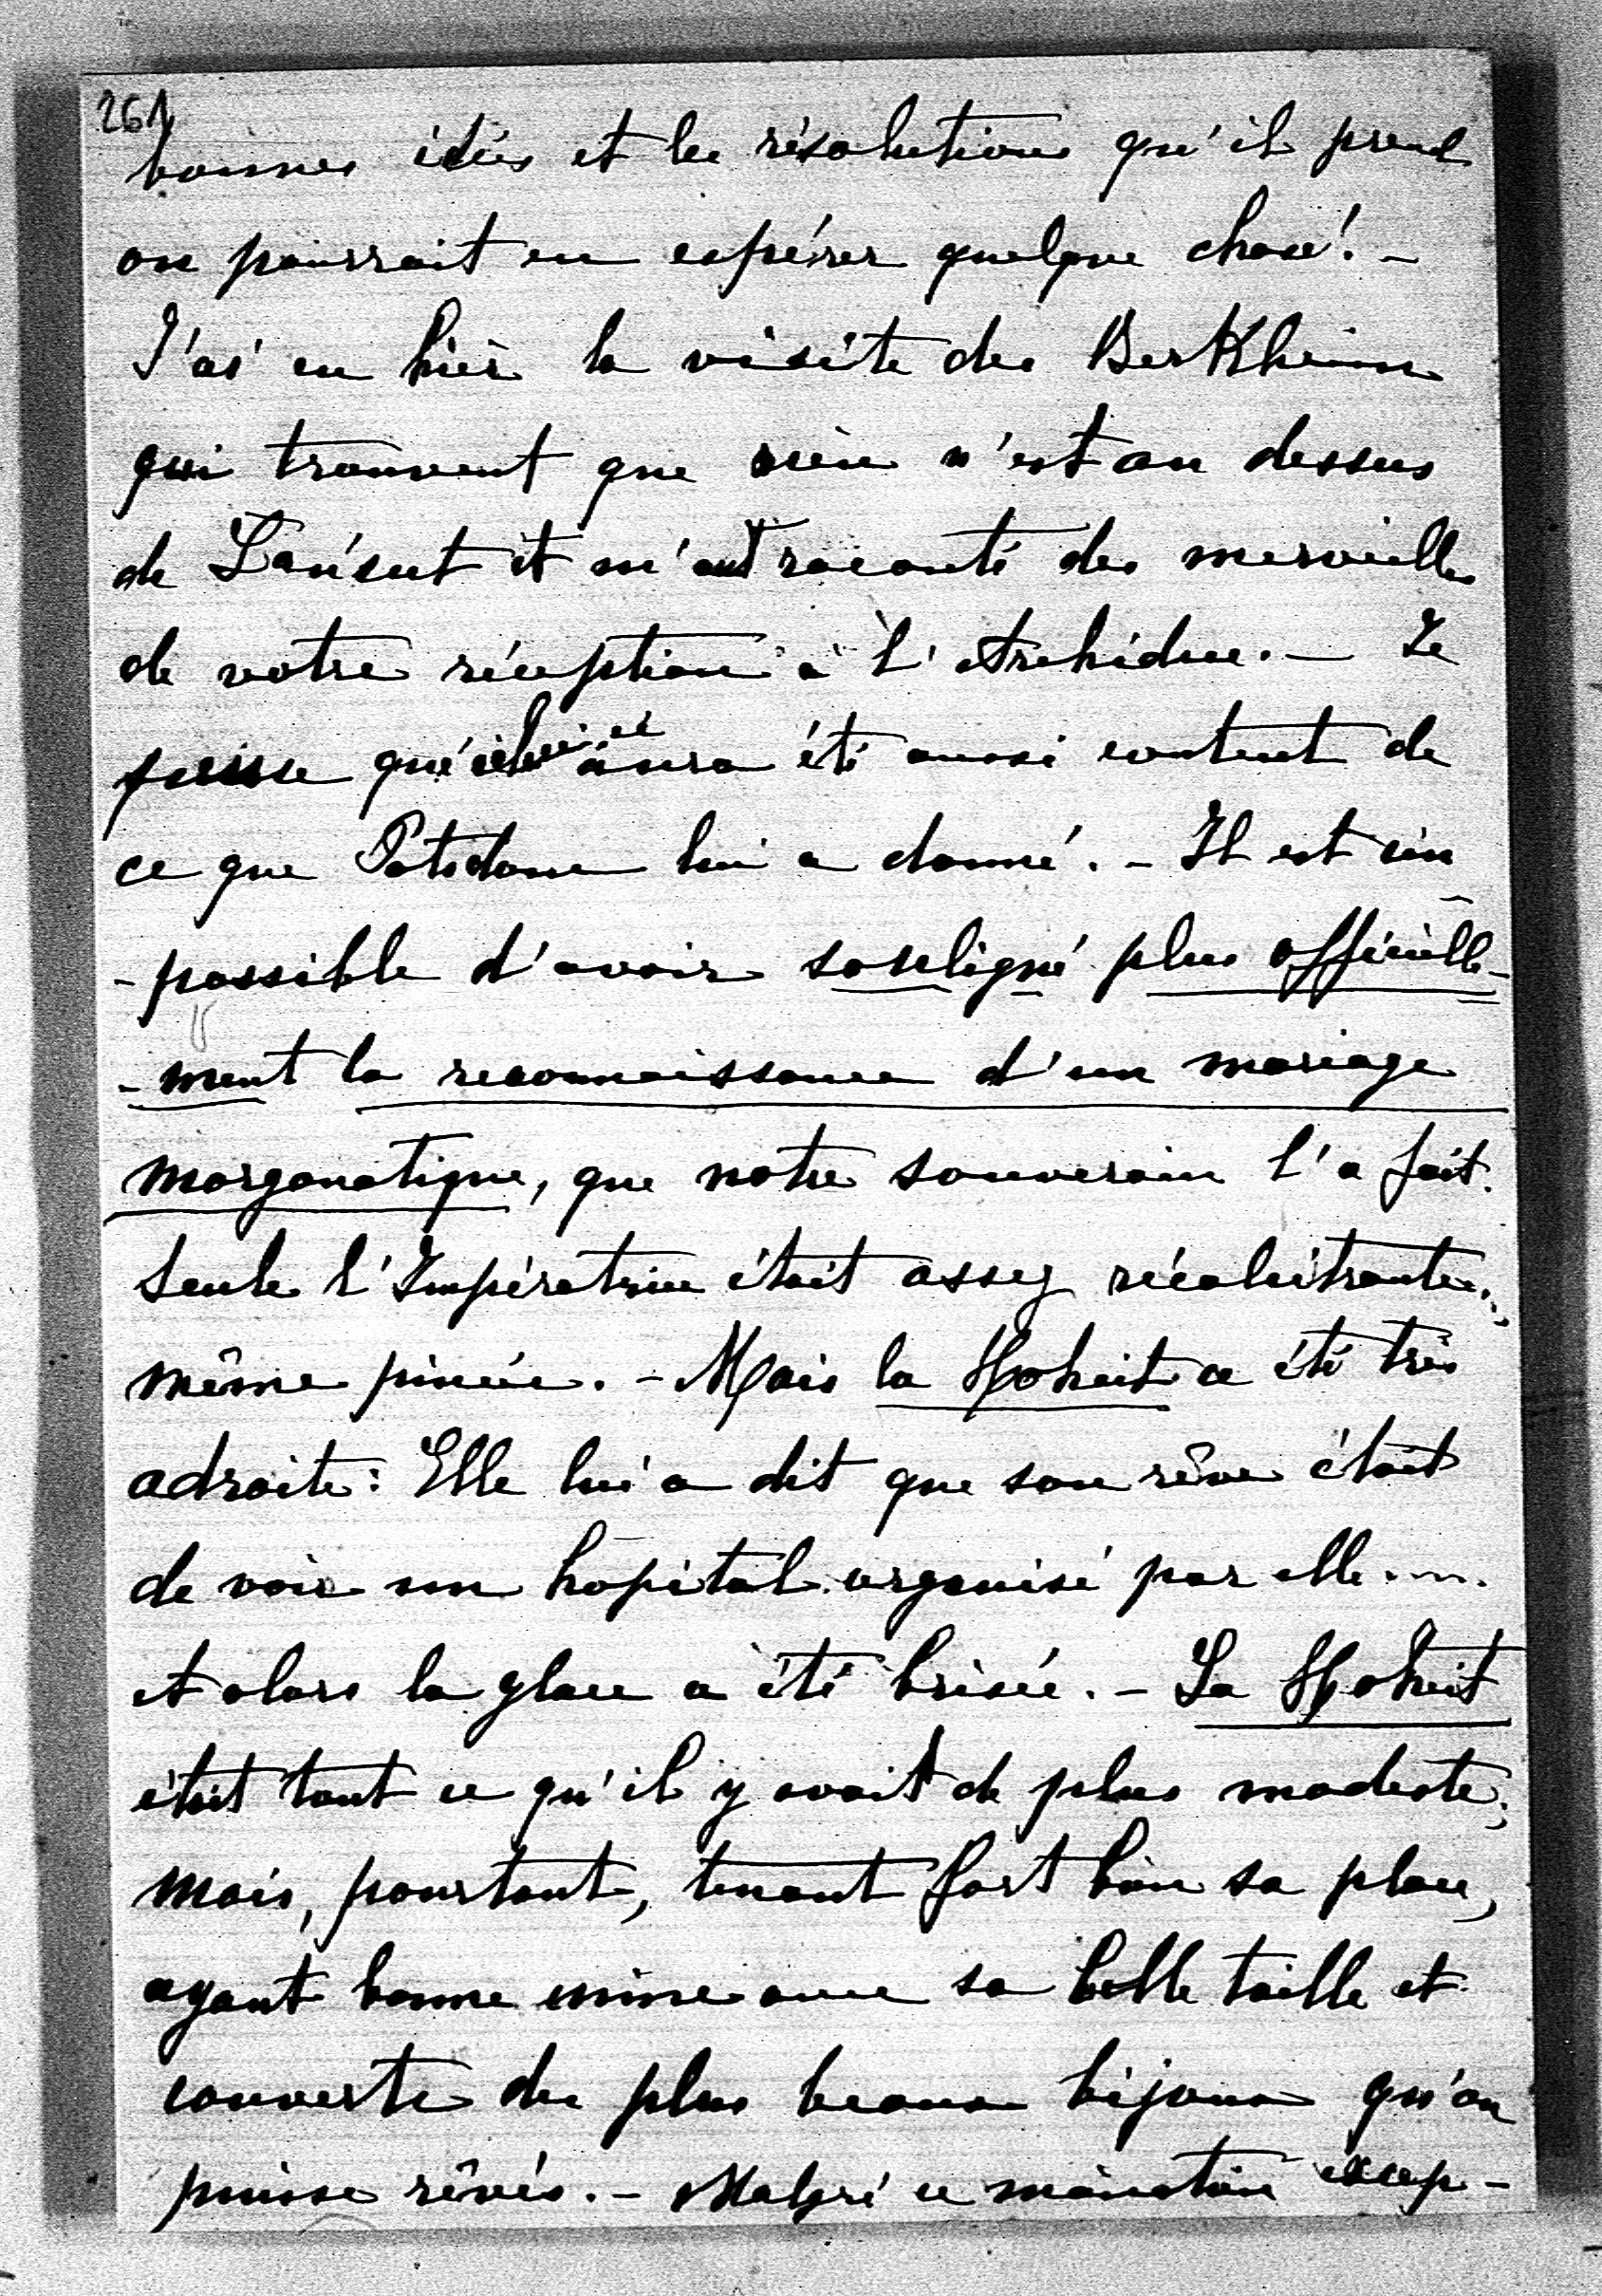 261
bonnes idées et les résolutions qu'il prend
on pourrait en espérer quelque chose! -
J'ai eu hier la visite des Berkheim
qui trouvent que rien n'est au dessus
de Lańcut et m'ont raconté des merveilles
de votre réception à l'Archiduc. - Je
pense que celui-ci aura été aussi content de
ce que Potsdam lui a donné. - Il est im
- possible d'avoir souligné plus officielle-
- ment la reconnaissance d'un mariage
morganatique, que notre souverain l'a fait.
Seule l'Impératrice était assez récalcitrante...
même pincée. - Mais la Hoheit a été très
adroite: Elle lui a dit que son rêve était
de voir un hôpital organisé par elle....
et alors la glace a été brisée. - La Hoheit
était tout ce qu'il y avait de plus modeste;
mais, pourtant, tenant fort bien sa place,
ayant bonne mine avec sa belle taille et
couverte des plus beaux bijoux qu'on
puisse rêver. - Malgré ce maintien excep-